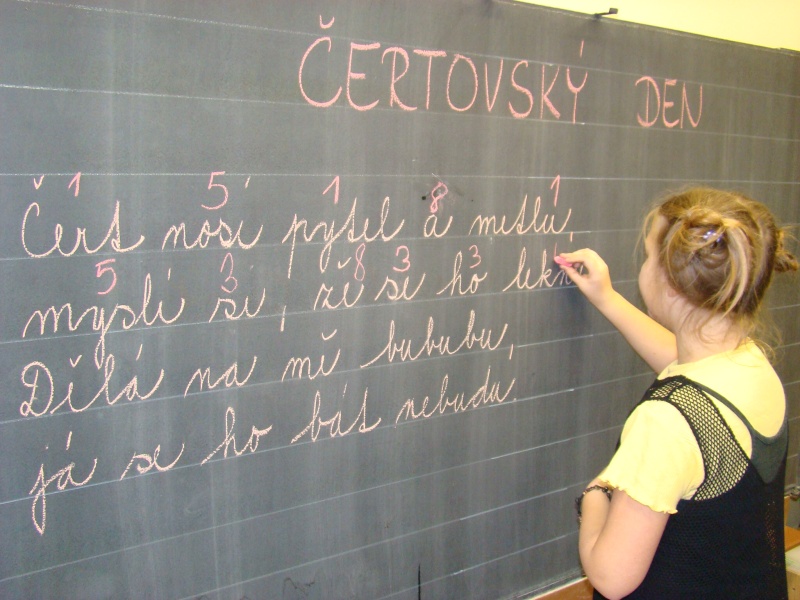 ČERTOVSKÝ DEN
1 5 1 8 1
Čert nosí pytel a metlu,
5 3 8 3 3
myslí si, že se ho
Dělá na mě bububu,
já se ho bát nebudu.